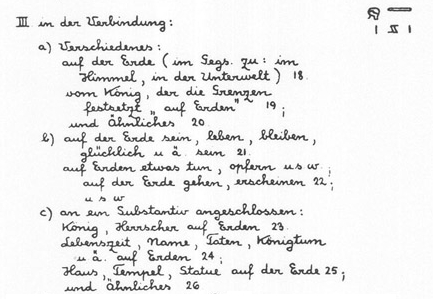 III in der Verbindung:
a) Verschiedenes:
auf der Erde (im Gegs. zu: im
Himmel, in der Unterwelt) 18.
vom König, der die Grenzen
festsetzt „auf Erden" 19;
und Ähnliches 20
b) auf der Erde sein, leben, bleiben,
glücklich u ä. sein 21.
auf Erden etwas tun, opfern u s w.;
auf der Erde gehen, erscheinen 22;
u s w
c) an ein Substantiv angeschlossen:
König, Herrscher auf Erden 23.
Lebenszeit, Name, Taten, Königtum
u ä. auf Erden 24;
Haus, Tempel, Statue auf der Erde 25;
und Ähnliches 26